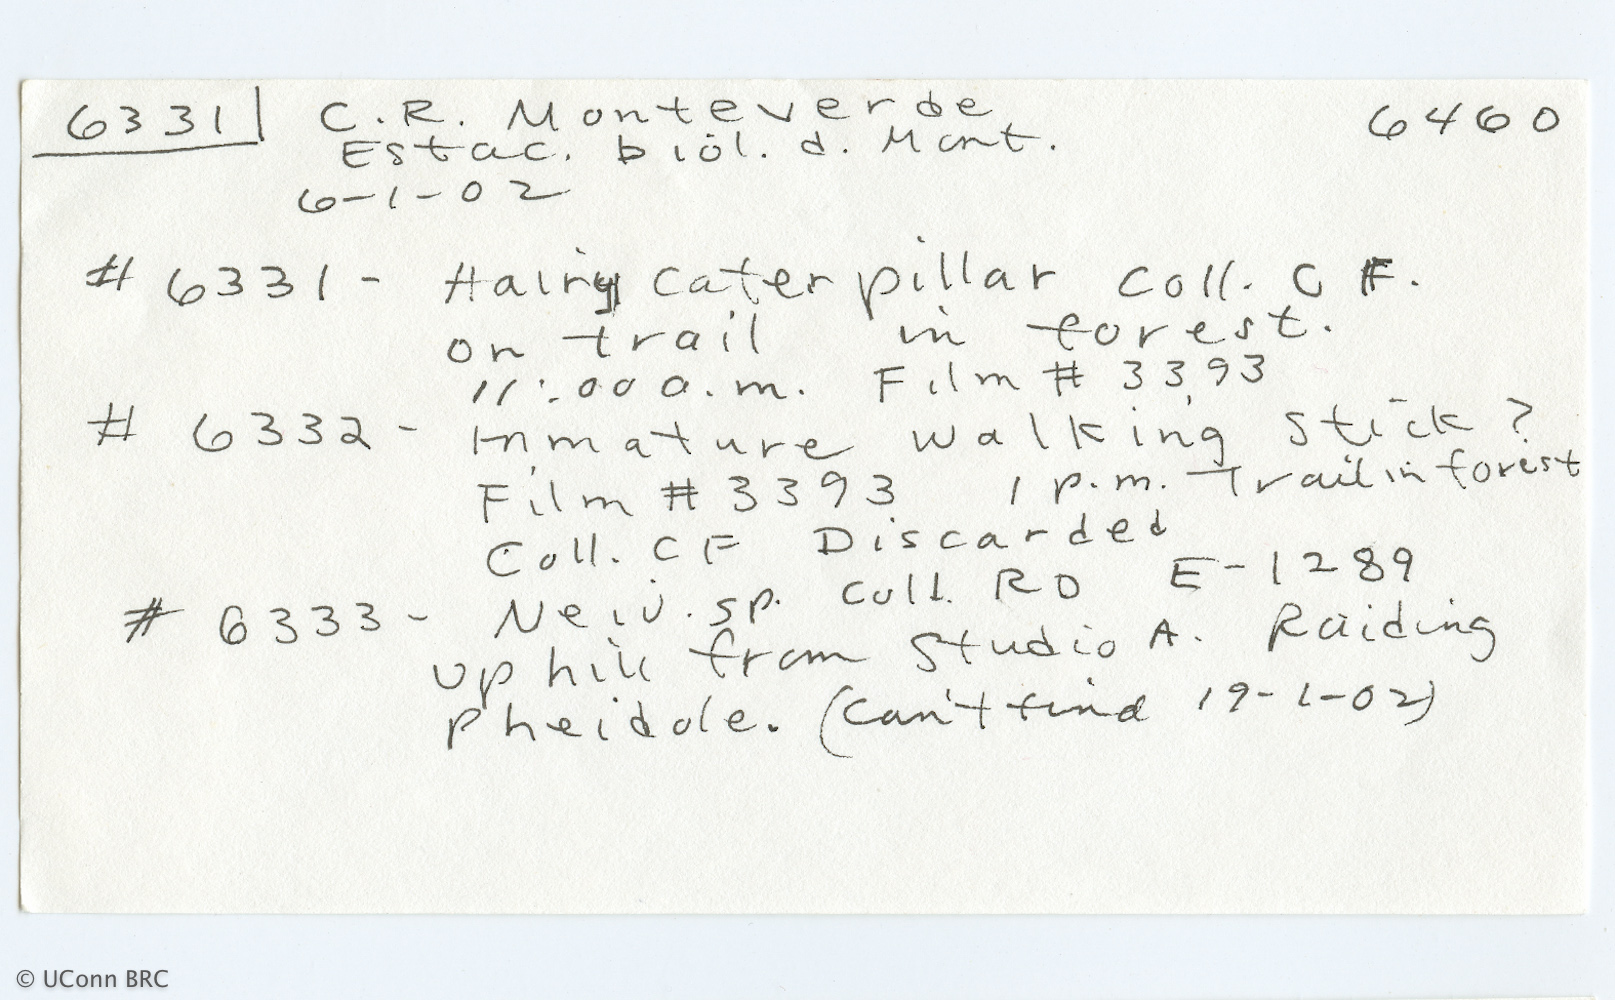 6331 C.R. Monteverde 6460
Estac. biol. d. Mont.
6-1-02
# 6331 - Hairy caterpillar coll. C F.
on trail in forest.
11:00 a.m. Film # 3393
# 6332 - Inmature walking stick?
Film # 3393 1 p.m. Trail in forest
Coll. CF Discarded
# 6333 - Neiv. sp. coll. RD E-1289
up hill from Studio A. Raiding
Pheidole. (can't find 19-1-02)
© UConn BRC